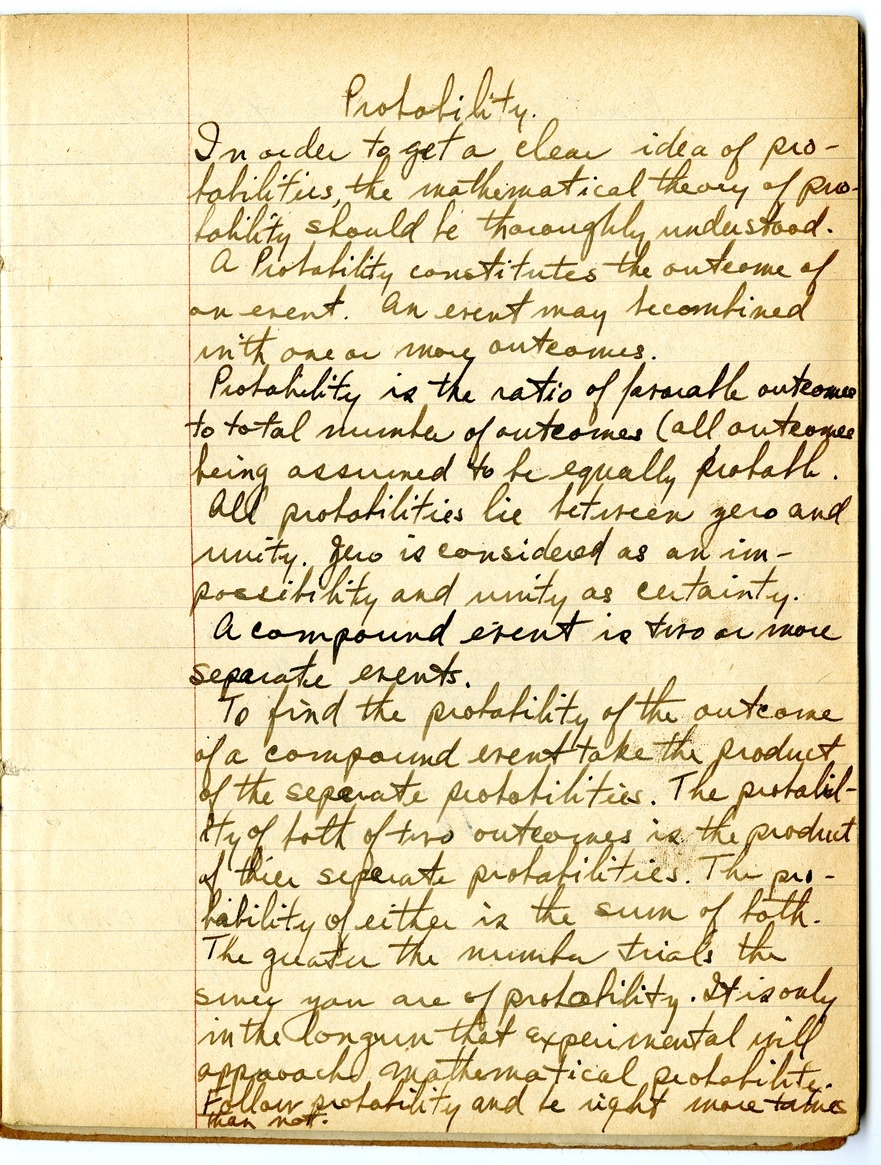 Probability.
In order to get a clear idea of pro-
babilities, the mathematical theory of pro-
bability should be thoroughly understood.
A Probability constitutes the outcome of
an event. An event may be combined
with one or more outcomes.
Probability is the ratio of favorable outcomes
to total number of outcomes (all outcomes
being assumed to be equally probable.
All probabilities lie between zero and
unity. Zero is considered as an im-
possibility and unity as certainty.
A compound event is two or more
separate events.
To find the probability of the outcome
of a compound event take the product
of the seperate probabilities. The probabil-
ity of both of two outcomes is the product
of thier seperate probabilities. The pro-
bability of either is the sum of both.
The greater the number trials the
surer you are of probability. It is only
in the longrun that experimental will
approach mathematical probability.
Follow probability and be right more times
than not.